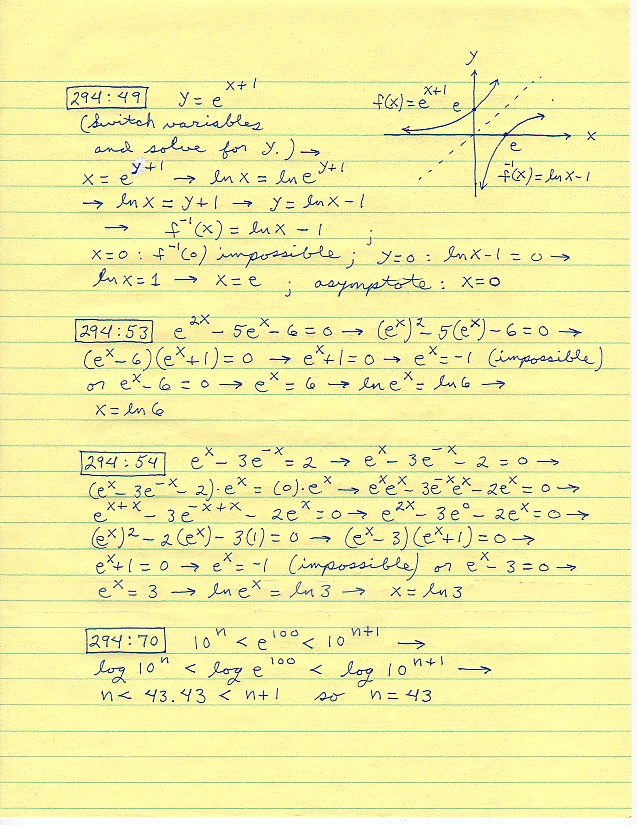 294:49 y = e^(x+1)
(Switch variables
and solve for y.) →
x = e^(y+1) → ln x = ln e^(y+1)
→ ln x = y+1 → y = ln x - 1
→ f⁻¹(x) = ln x - 1 ;
x=0 : f⁻¹(0) impossible ; y=0 : ln x - 1 = 0 →
ln x = 1 → x = e ; asymptote : x=0
y
f(x) = e^(x+1) e
x
e
f⁻¹(x) = ln x - 1
294:53 e^(2x) - 5e^x - 6 = 0 → (e^x)² - 5(e^x) - 6 = 0 →
(e^x - 6)(e^x + 1) = 0 → e^x + 1 = 0 → e^x = -1 (impossible)
or e^x - 6 = 0 → e^x = 6 → ln e^x = ln 6 →
x = ln 6
294:54 e^x - 3e^(-x) = 2 → e^x - 3e^(-x) - 2 = 0 →
(e^x - 3e^(-x) - 2)·e^x = (0)·e^x → e^x e^x - 3e^(-x) e^x - 2e^x = 0 →
e^(x+x) - 3e^(-x+x) - 2e^x = 0 → e^(2x) - 3e^0 - 2e^x = 0 →
(e^x)² - 2(e^x) - 3(1) = 0 → (e^x - 3)(e^x + 1) = 0 →
e^x + 1 = 0 → e^x = -1 (impossible) or e^x - 3 = 0 →
e^x = 3 → ln e^x = ln 3 → x = ln 3
294:70 10^n < e^100 < 10^(n+1) →
log 10^n < log e^100 < log 10^(n+1) →
n < 43.43 < n+1 so n = 43